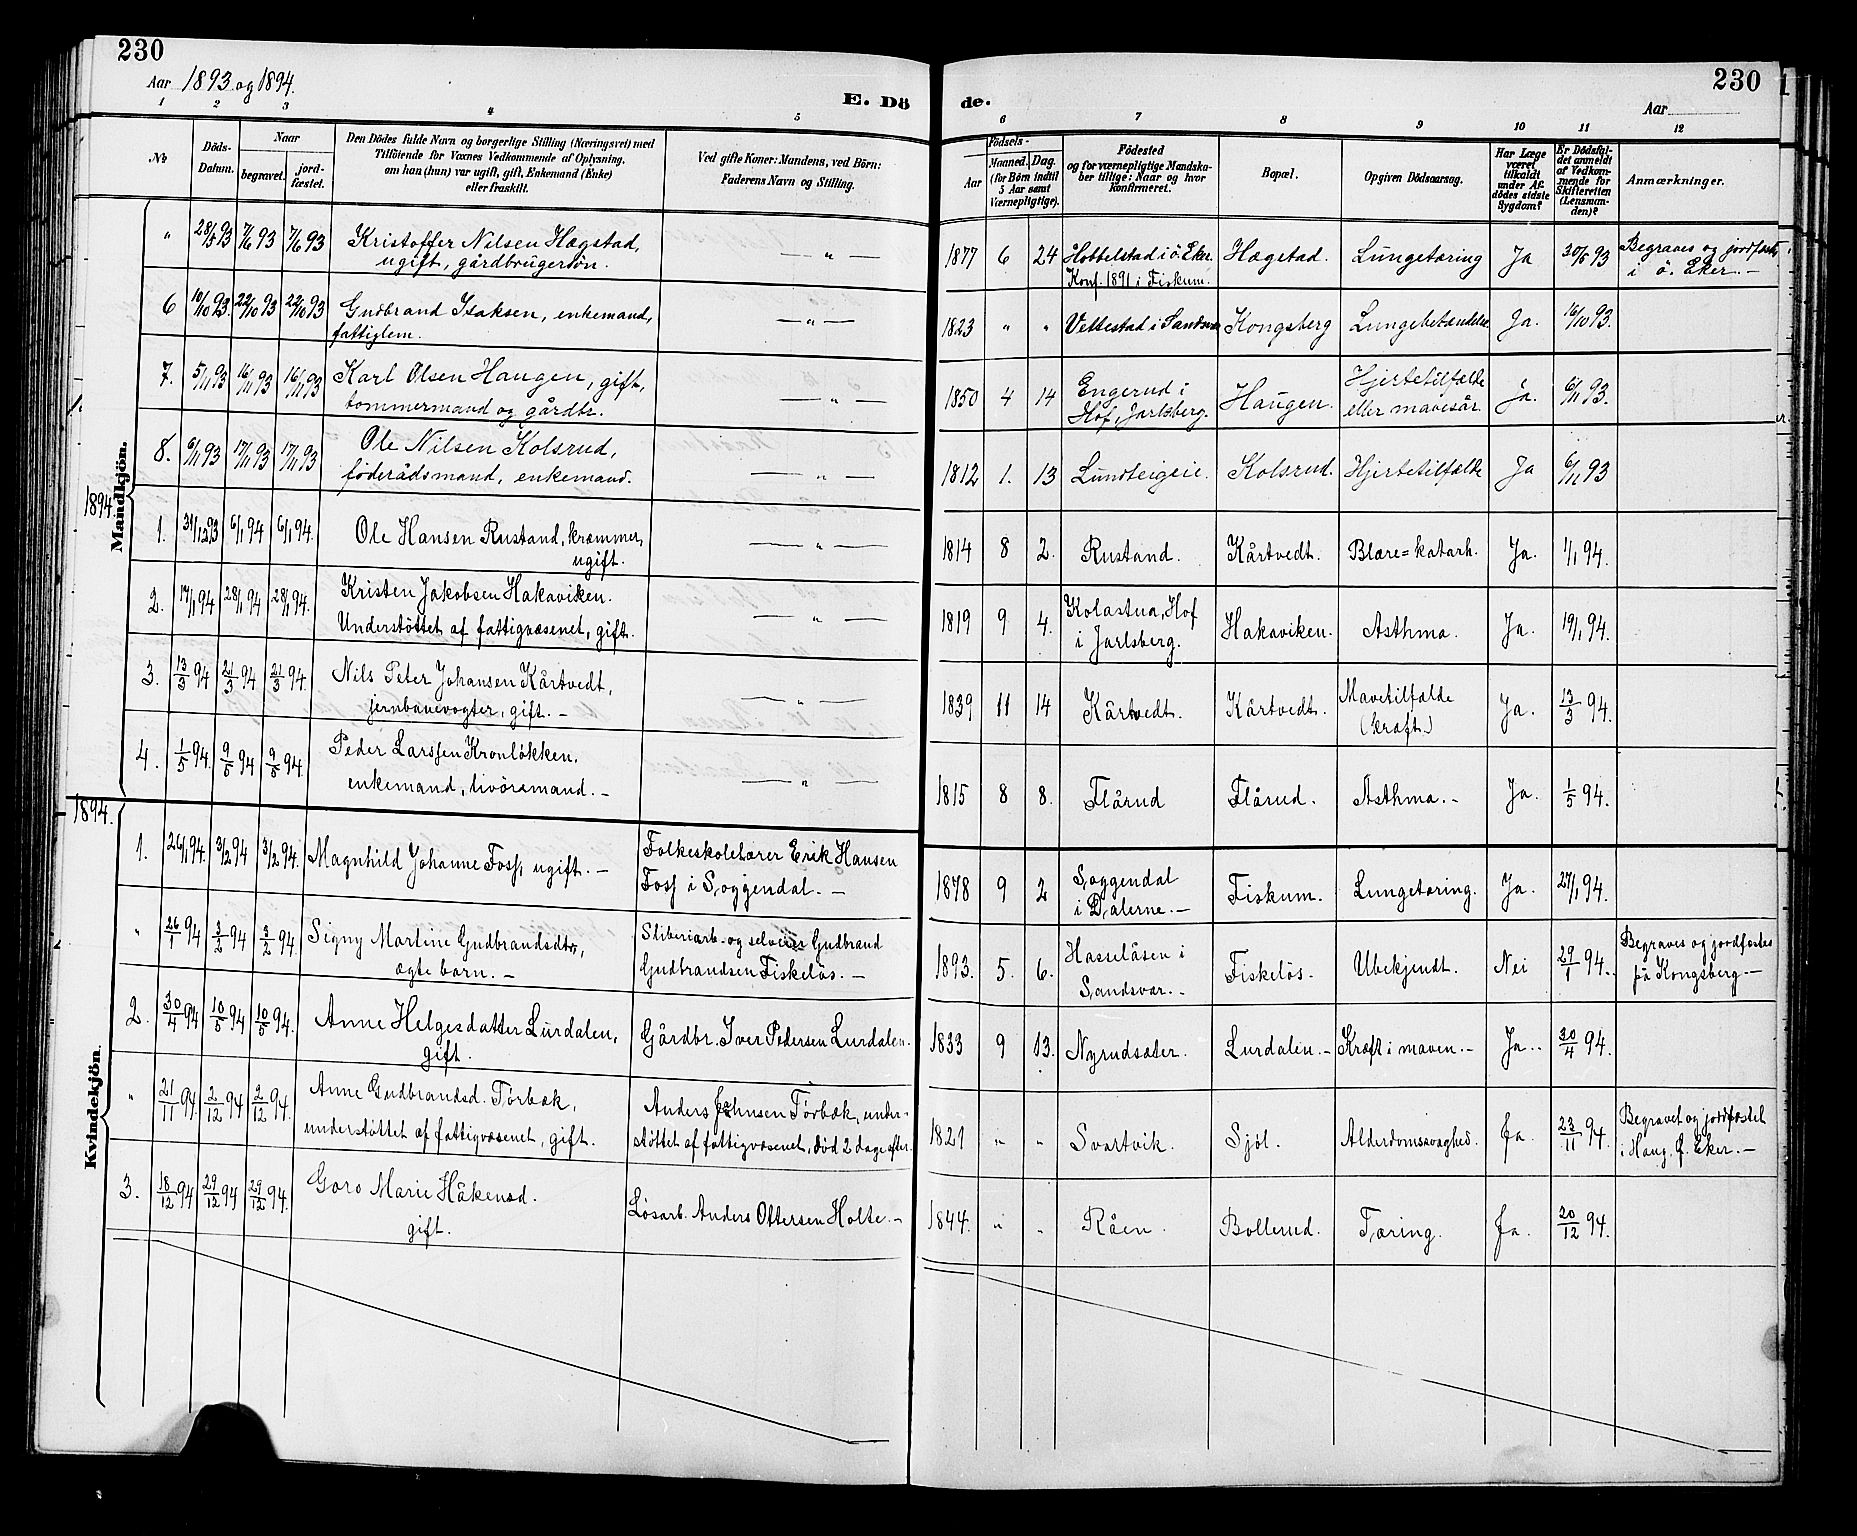 230
230
Aar 1893 og 1894.
E. Dö
de.
Aar
1 2 3 4 5
6 7 8 9 10 11 12
No
Döds-
Datum.
Naar
begravet.
jord-
fæstet.
Den Dödes fulde Navn og borgerlige Stilling (Næringsvei) med
Tilföiende for Voxnes Vedkommende af Oplysning,
om han (hun) var ugift, gift, Enkemand (Enke)
eller fraskilt.
Ved gifte Koner: Mandens, ved Börn:
Faderens Navn og Stilling.
Födsels-
Aar
Maaned. Dag.
(for Börn indtil
5 Aar samt
Værnepligtige).
Födested
og for værnepligtige Mandska-
ber tillige: Naar og hvor
Konfirmeret.
Bopæl.
Opgiven Dödsaarsag.
Har Læge
været
tilkaldt
under Af-
dödes sidste
Sygdom?
Er Dödsfal-
det anmeldt
af Vedkom-
mende for
Skifteretten
(Lensman-
den)?
Anmærkninger.
Mandkjön.
" 28/5 93 7/6 93 7/6 93 Kristoffer Nilsen Hægstad,
ugift, gårdbrugersön.
— " —
1877 6 24 Hobbelstad i ö. Eker.
Konf. 1891 i Fiskum.
Hægstad. Lungetæring Ja 30/5 93 Begraves og jordfæstes
i ö. Eker. —
6 10/10 93. 22/10 93 22/10 93 Gudbrand Isaksen, enkemand,
fattiglem.
— " —
1823 " " Vellestad i Sandsvær Kongsberg Lungebetændelse Ja. 16/10 93.
7. 5/11 93 16/11 93 16/11 93 Karl Olsen Haugen, gift,
tømmermand og gårdbr.
— " —
1850 4 14 Engerud i
Hof, Jarlsberg.
Haugen. Hjertetilfælde
eller mavesår.
Ja. 6/11 93.
8. 6/11 93 17/11 93 17/11 93 Ole Nilsen Kolsrud,
föderådsmand, enkemand.
— " —
1812 1. 13 Lundteigeie. Kolsrud. Hjertetilfælde Ja 6/11 93
1894.
1. 31/12 93 6/1 94 6/1 94. Ole Hansen Rustand, kræmmer,
ugift.
— " —
1814 8 2. Rustand. Kårtvedt. Blære=katarh. Ja. 1/1 94.
2. 17/1 94 28/1 94 28/1 94. Kristen Jakobsen Hakaviken.
Understöttet af fattigvæsenet, gift.
— " —
1819 9 4. Kolastua, Hof
i Jarlsberg.
Hakaviken. Asthma. Ja. 19/1 94.
3. 13/3 94 21/3 94 21/3 94. Nils Peter Johansen Kårtvedt,
jernbanevogter, gift. —
— " —
1839 11 14 Kårtvedt. Kårtvedt. Mavetilfælde
(kræft.)
Ja. 13/3 94.
4. 1/5 94. 9/5 94 9/5 94. Peder Larssen Kronlökken,
enkemand, livöresmand. —
— " —
1815 8 8. Flårud Flårud. Asthma. — Ja. 1/5 94.
1894.
Kvindekjön.
1. 26/1 94. 3/2 94 3/2 94. Magnhild Johanne Foss, ugift. —
Folkeskolelærer Erik Hansen
Foss i Soggendal. —
1878 9 2 Soggendal
i Dalerne. —
Fiskum. Lungetæring. Ja. 27/1 94.
" 26/1 94 3/2 94 3/2 94. Signy Martine Gudbrandsdtr,
ægte barn. —
Sliberiarb. og selveier Gudbrand
Gudbrandsen Fiskelös. —
1893. 5. 6. Hasselåsen i
Sandsvær. —
Fiskelös. Ubekjendt. Nei 29/1 94. Begraves og jordfæstes
på Kongsberg —
2. 30/4 94 10/5 94 10/5 94. Anne Helgesdatter Lurdalen,
gift.
Gårdbr. Iver Pedersen Lurdalen.
1833 9 13. Nyrudsæter. Lurdalen. — Kræft i maven. — Ja. 30/4 94.
" 21/11 94. 2/12 94 2/12 94. Anne Gudbrandsd. Törbæk,
understöttet af fattigvæsenet, gift.
Anders Johnsen Törbæk, under-
stöttet af fattigvæsenet, död 2 dage efter.
1821 " " Svartvik. Sjöl. Alderdomssvaghed. Ja. 23/11 94. Begravet og jordfæstet
i Haug, Ö. Eker. —
3. 18/12 94 29/12 94 29/12 94. Goro Marie Håkensd.
gift.
Lösarb. Anders Ottersen Holte. —
1844. " " Råen. Bollerud. Tæring. Ja. 20/12 94.